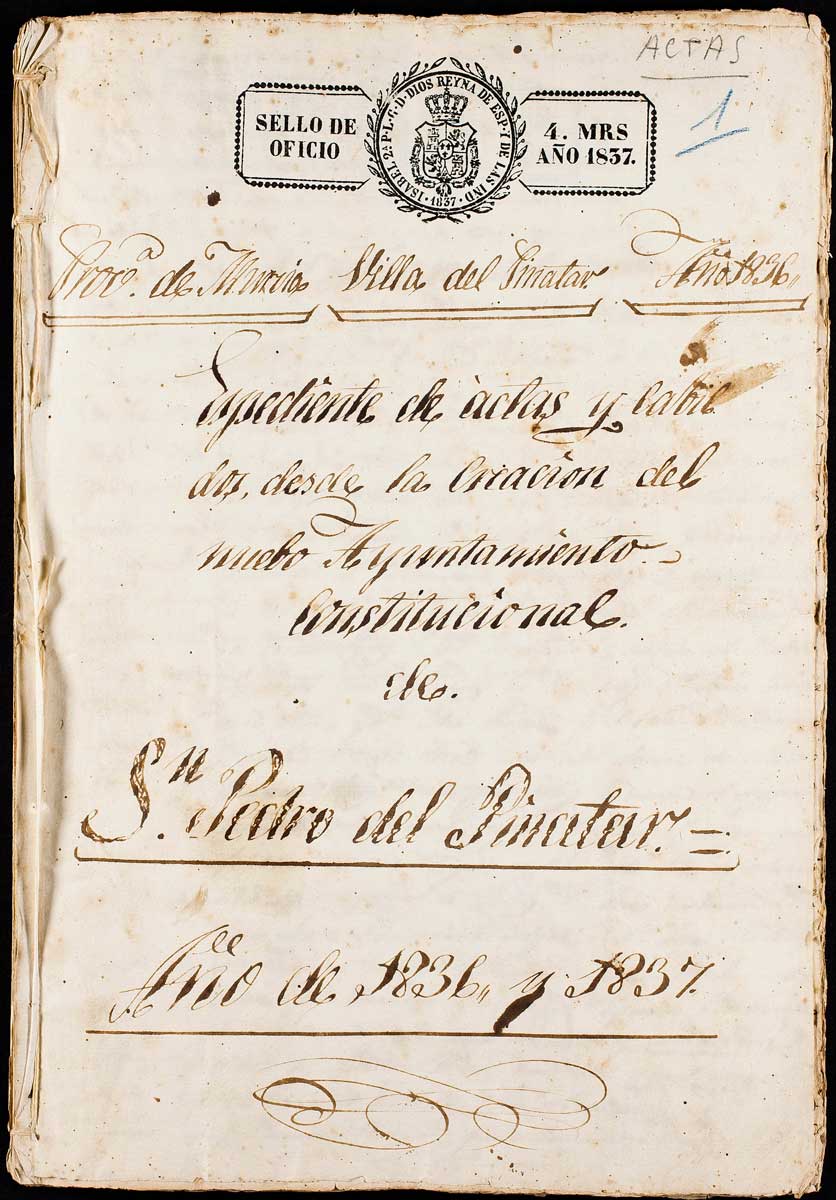 ACTAS
1
SELLO DE
OFICIO
ISABEL 2ª P. L. G. D. DIOS REYNA DE ESP. Y DE LAS IND
· 1837 ·
4. MRS
AÑO 1837.
Provª. de Murcia Villa del Pinatar Año 1836,,
Espediente de actas y cabil
dos, desde la creacion del
nuebo Ayuntamiento
Constitucional.
de.
Sn. Pedro del Pinatar. =
Año de 1836,, y 1837.